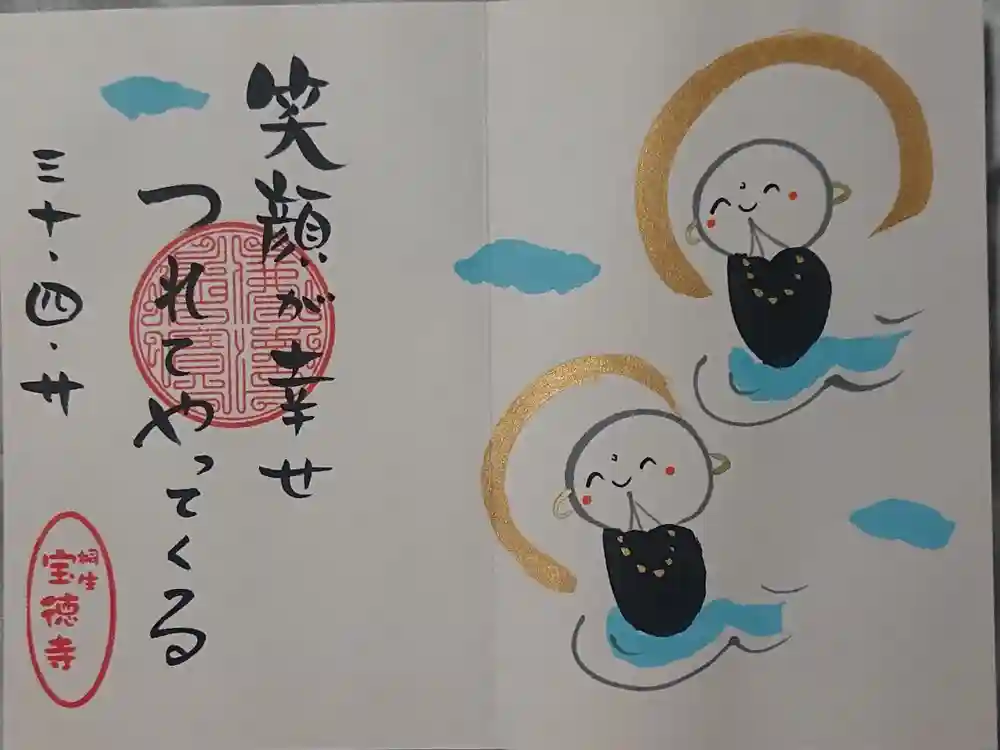 笑顔が幸せ
つれてやってくる
三十・四・廿
桐生
宝徳寺